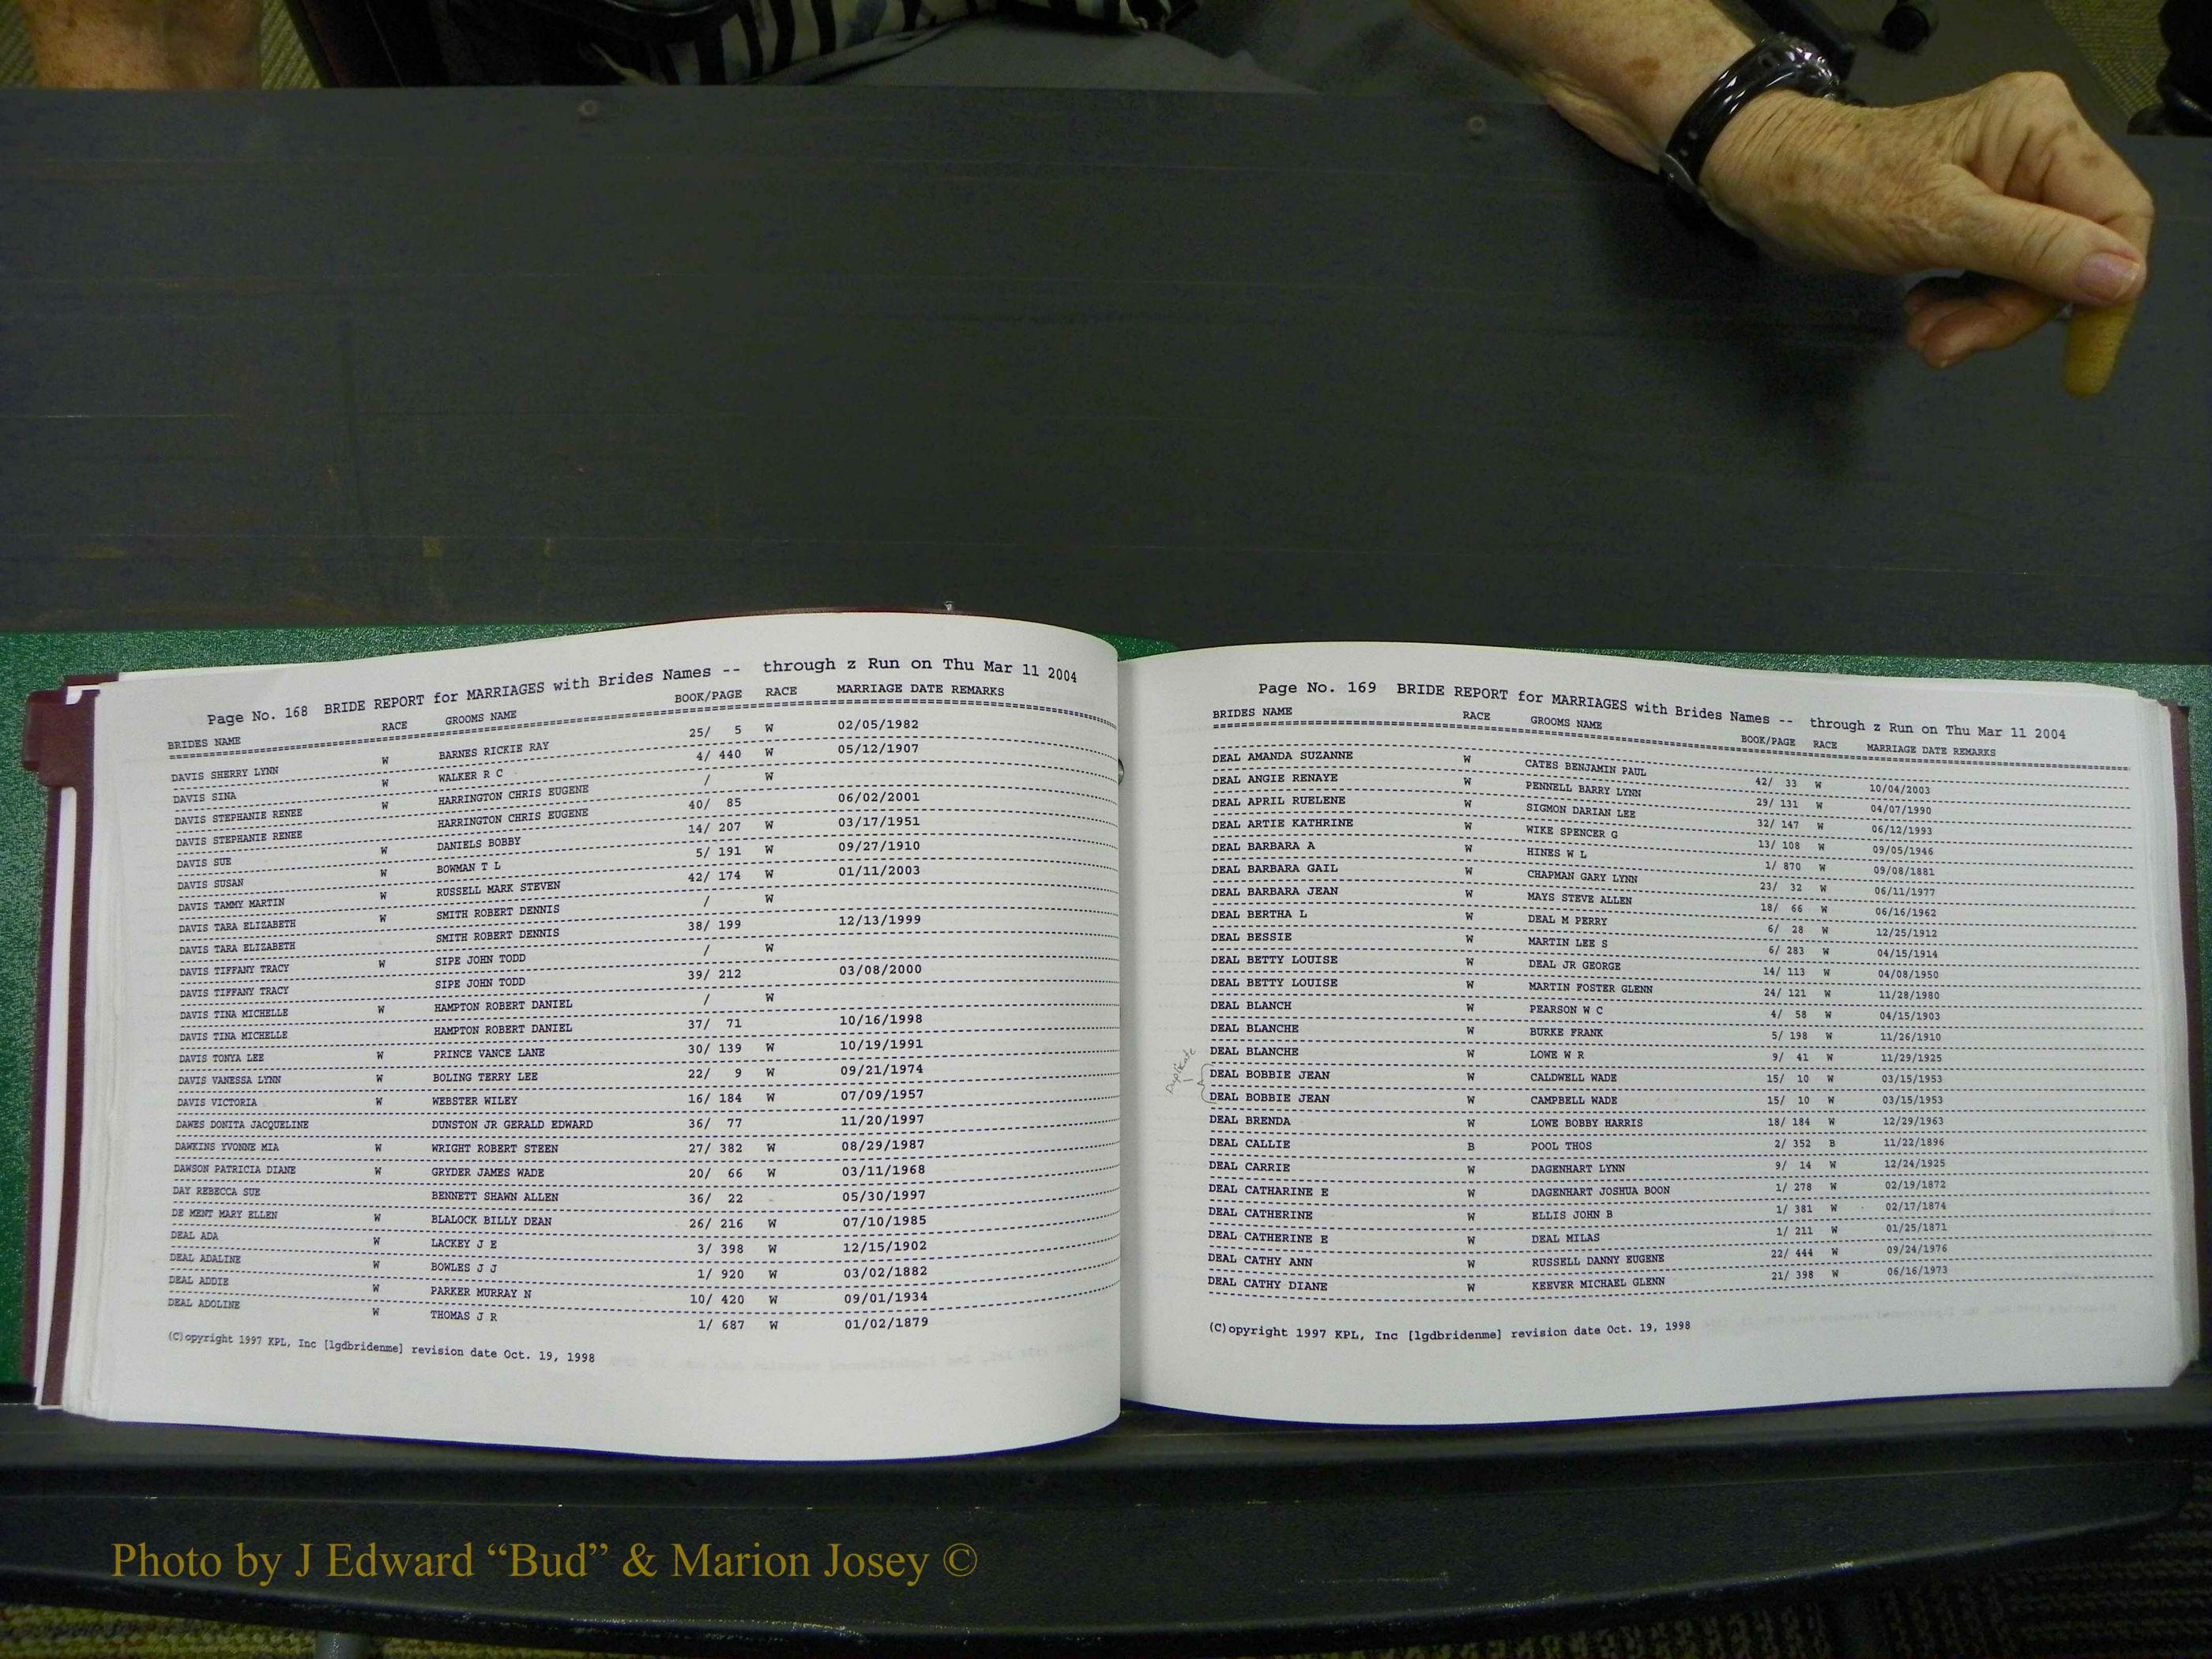 Page No. 168 BRIDE REPORT for MARRIAGES with Brides Names -- through z Run on Thu Mar 11 2004
BRIDES NAME RACE GROOMS NAME BOOK/PAGE RACE MARRIAGE DATE REMARKS
DAVIS SHERRY LYNN W BARNES RICKIE RAY 25/ 5 W 02/05/1982
DAVIS SINA W WALKER R C 4/ 440 W 05/12/1907
DAVIS STEPHANIE RENEE W HARRINGTON CHRIS EUGENE / W
DAVIS STEPHANIE RENEE HARRINGTON CHRIS EUGENE 40/ 85 06/02/2001
DAVIS SUE W DANIELS BOBBY 14/ 207 W 03/17/1951
DAVIS SUSAN W BOWMAN T L 5/ 191 W 09/27/1910
DAVIS TAMMY MARTIN W RUSSELL MARK STEVEN 42/ 174 W 01/11/2003
DAVIS TARA ELIZABETH W SMITH ROBERT DENNIS / W
DAVIS TARA ELIZABETH SMITH ROBERT DENNIS 38/ 199 12/13/1999
DAVIS TIFFANY TRACY W SIPE JOHN TODD / W
DAVIS TIFFANY TRACY SIPE JOHN TODD 39/ 212 03/08/2000
DAVIS TINA MICHELLE W HAMPTON ROBERT DANIEL / W
DAVIS TINA MICHELLE HAMPTON ROBERT DANIEL 37/ 71 10/16/1998
DAVIS TONYA LEE W PRINCE VANCE LANE 30/ 139 W 10/19/1991
DAVIS VANESSA LYNN W BOLING TERRY LEE 22/ 9 W 09/21/1974
DAVIS VICTORIA W WEBSTER WILEY 16/ 184 W 07/09/1957
DAWES DONITA JACQUELINE DUNSTON JR GERALD EDWARD 36/ 77 11/20/1997
DAWKINS YVONNE MIA W WRIGHT ROBERT STEEN 27/ 382 W 08/29/1987
DAWSON PATRICIA DIANE W GRYDER JAMES WADE 20/ 66 W 03/11/1968
DAY REBECCA SUE BENNETT SHAWN ALLEN 36/ 22 05/30/1997
DE MENT MARY ELLEN W BLALOCK BILLY DEAN 26/ 216 W 07/10/1985
DEAL ADA W LACKEY J E 3/ 398 W 12/15/1902
DEAL ADALINE W BOWLES J J 1/ 920 W 03/02/1882
DEAL ADDIE W PARKER MURRAY N 10/ 420 W 09/01/1934
DEAL ADOLINE W THOMAS J R 1/ 687 W 01/02/1879
(C)opyright 1997 KPL, Inc [lgdbridenme] revision date Oct. 19, 1998
Page No. 169 BRIDE REPORT for MARRIAGES with Brides Names -- through z Run on Thu Mar 11 2004
BRIDES NAME RACE GROOMS NAME BOOK/PAGE RACE MARRIAGE DATE REMARKS
DEAL AMANDA SUZANNE W CATES BENJAMIN PAUL 42/ 33 W 10/04/2003
DEAL ANGIE RENAYE W PENNELL BARRY LYNN 29/ 131 W 04/07/1990
DEAL APRIL RUELENE W SIGMON DARIAN LEE 32/ 147 W 06/12/1993
DEAL ARTIE KATHRINE W WIKE SPENCER G 13/ 108 W 09/05/1946
DEAL BARBARA A W HINES W L 1/ 870 W 09/08/1881
DEAL BARBARA GAIL W CHAPMAN GARY LYNN 23/ 32 W 06/11/1977
DEAL BARBARA JEAN W MAYS STEVE ALLEN 18/ 66 W 06/16/1962
DEAL BERTHA L W DEAL M PERRY 6/ 28 W 12/25/1912
DEAL BESSIE W MARTIN LEE S 6/ 283 W 04/15/1914
DEAL BETTY LOUISE W DEAL JR GEORGE 14/ 113 W 04/08/1950
DEAL BETTY LOUISE W MARTIN FOSTER GLENN 24/ 121 W 11/28/1980
DEAL BLANCH W PEARSON W C 4/ 58 W 04/15/1903
DEAL BLANCHE W BURKE FRANK 5/ 198 W 11/26/1910
DEAL BLANCHE W LOWE W R 9/ 41 W 11/29/1925
Duplicate
DEAL BOBBIE JEAN W CALDWELL WADE 15/ 10 W 03/15/1953
DEAL BOBBIE JEAN W CAMPBELL WADE 15/ 10 W 03/15/1953
DEAL BRENDA W LOWE BOBBY HARRIS 18/ 184 W 12/29/1963
DEAL CALLIE B POOL THOS 2/ 352 B 11/22/1896
DEAL CARRIE W DAGENHART LYNN 9/ 14 W 12/24/1925
DEAL CATHARINE E W DAGENHART JOSHUA BOON 1/ 278 W 02/19/1872
DEAL CATHERINE W ELLIS JOHN B 1/ 381 W 02/17/1874
DEAL CATHERINE E W DEAL MILAS 1/ 211 W 01/25/1871
DEAL CATHY ANN W RUSSELL DANNY EUGENE 22/ 444 W 09/24/1976
DEAL CATHY DIANE W KEEVER MICHAEL GLENN 21/ 398 W 06/16/1973
(C)opyright 1997 KPL, Inc [lgdbridenme] revision date Oct. 19, 1998
Photo by J Edward “Bud” & Marion Josey ©